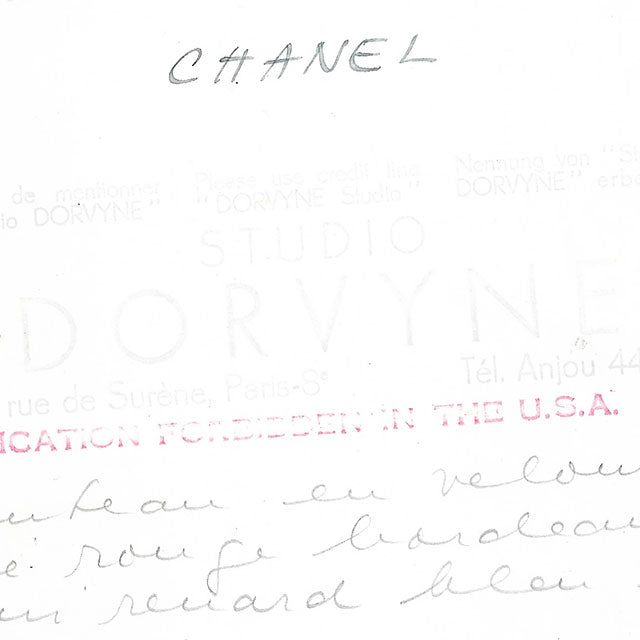 CHANEL
de mentionner
"DORVYNE"
Please use credit line
"DORVYNE Studio"
Nennung von "St
DORVYNE" erbe
STUDIO
DORVYNE
rue de Surène, Paris-8e
Tél. Anjou 44
ICATION FORBIDDEN IN THE U.S.A.
en velou
rouge bordeau
renard bleu